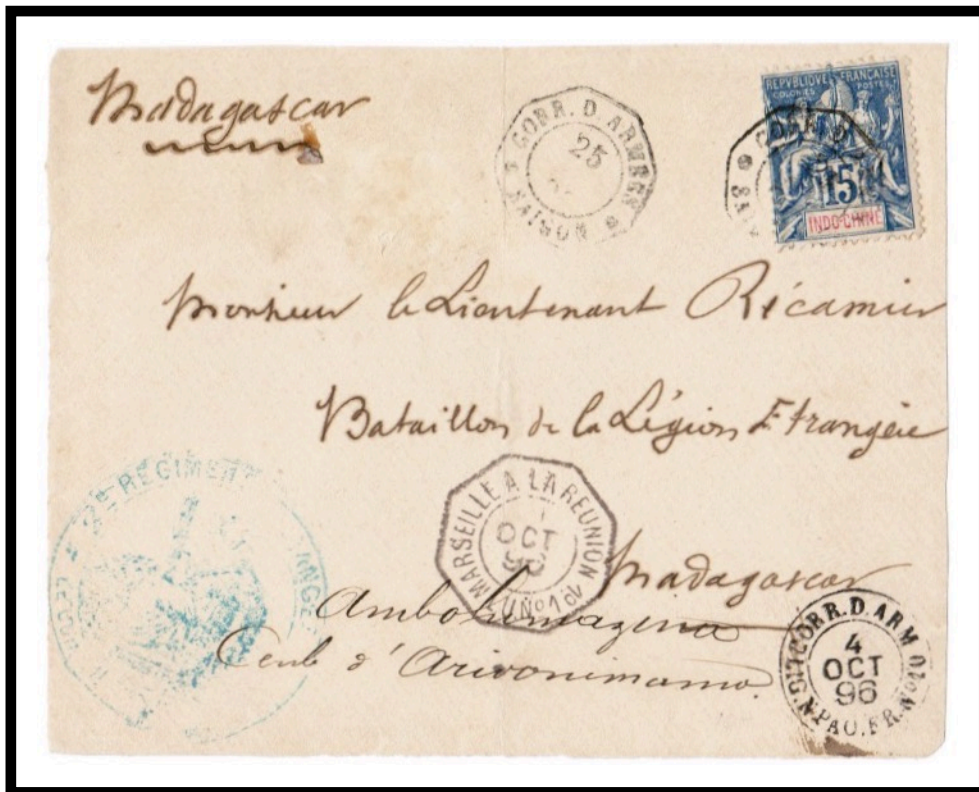 Madagascar
CORR. D. ARMEES
25
SAIGON
REPVBLIQVE FRANÇAISE
COLONIES POSTES
15
INDO-CHINE
CORR. D.
Monsieur le Lieutenant Récamier
Bataillon de la Légion Etrangère
RÉGIMENT
MARSEILLE A LA RÉUNION
OCT
96
L.U Nº 1
Madagascar
Ambohimazina
d'Arivonimamo.
CORR. D. ARM
4
OCT
96
LIG. N PAQ. FR. Nº 10